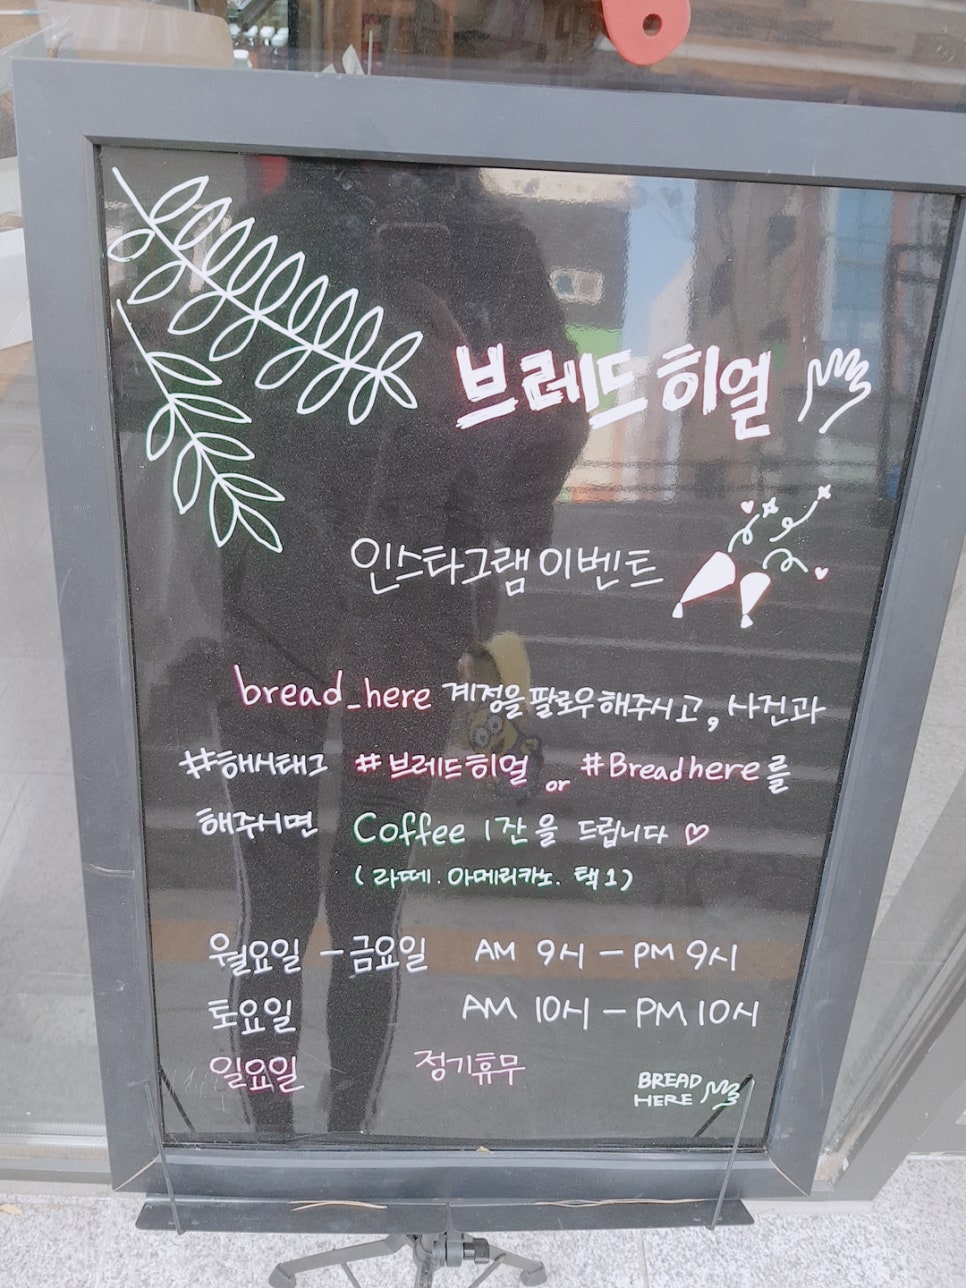 브레드히얼
인스타그램 이벤트
bread_here 계정을 팔로우해주시고, 사진과
#해시태그 #브레드히얼 or #Breadhere 를
해주시면 Coffee 1잔을 드립니다 ♡
(라떼. 아메리카노. 택1)
월요일 - 금요일 AM 9시 - PM 9시
토요일 AM 10시 - PM 10시
일요일 정기휴무
BREAD
HERE